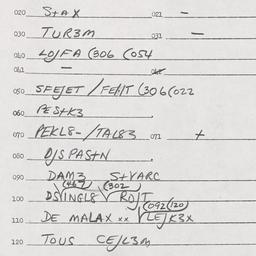 020 S+AX 021 -
030 TUR3M 031 -
040 LOJFA (306 (054
041 -
050 SFEJET / FEHT (306(022
060 PES+K3
070 PEKL8- /TAL83 071 +
080 DJSPAS+N
090 DAM3 S+VARC
(467) (302
100 DSJINGL8 V ROJT
(092(120)
110 DE MALAX xx V LEJK3X
120 TOUS CEJL3M